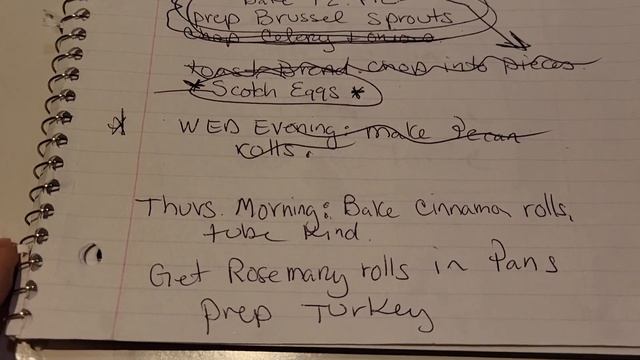 prep Brussel Sprouts
chop Celery + onions
toast Bread. chop into pieces
* Scotch Eggs *
WED Evening: make Pecan
rolls.
Thurs. Morning: Bake Cinnamon rolls,
tube kind.
Get Rosemary rolls in Pans
prep Turkey